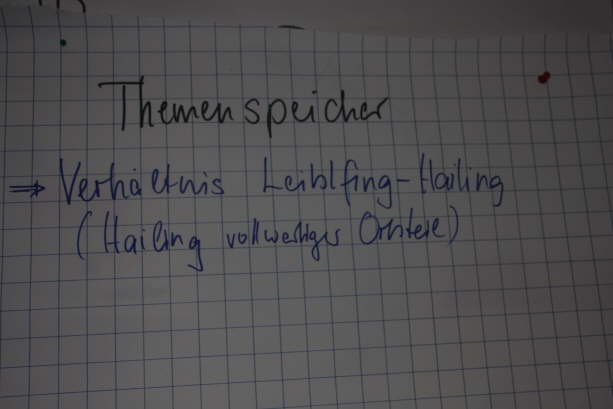 Themenspeicher
⇒ Verhältnis Leiblfing-Hailing
(Hailing vollwertiges